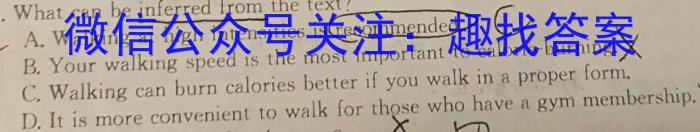 . What can be inferred from the text?
A. Walking at high intensities is recommended.
B. Your walking speed is the most important to calorie-burning.
C. Walking can burn calories better if you walk in a proper form.
D. It is more convenient to walk for those who have a gym membership.
微信公众号关注：趣找答案